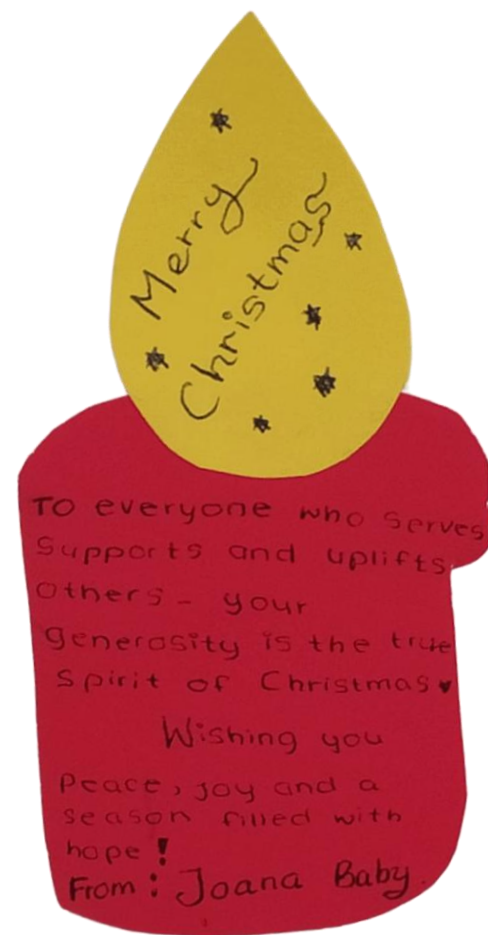 Merry
Christmas
To everyone who serves
supports and uplifts
others - your
generosity is the true
spirit of Christmas
Wishing you
Peace, joy and a
season filled with
hope!
From: Joana Baby.